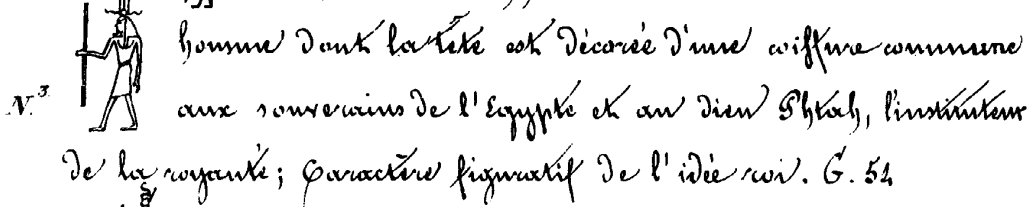 homme dont la tête est décorée d'une coiffure commune
N.º 3. aux souverains de l'Egypte et au dieu Phtah, l'instituteur
de la royauté; Caractère figuratif de l'idée roi. G. 54